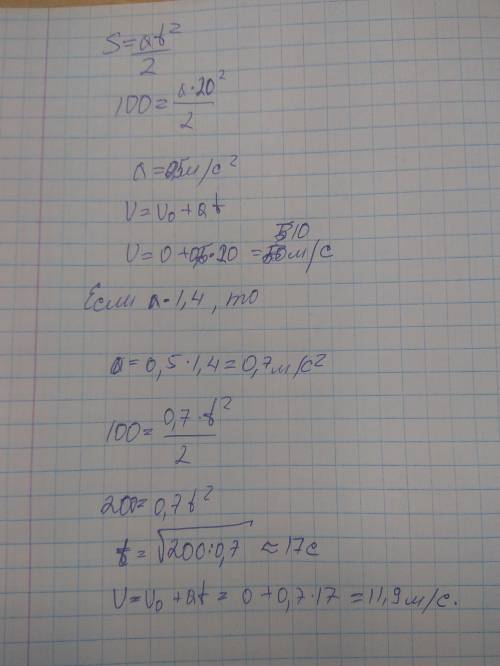 S = at²/2
100 = a·20²/2
a = 0,5 м/с²
v = v₀ + at
v = 0 + 0,5·20 = 10 м/с
Если a·1,4, то
a = 0,5·1,4 = 0,7 м/с²
100 = 0,7·t²/2
200 = 0,7t²
t = √200:0,7 ≈ 17с
v = v₀ + at = 0 + 0,7·17 = 11,9 м/с.